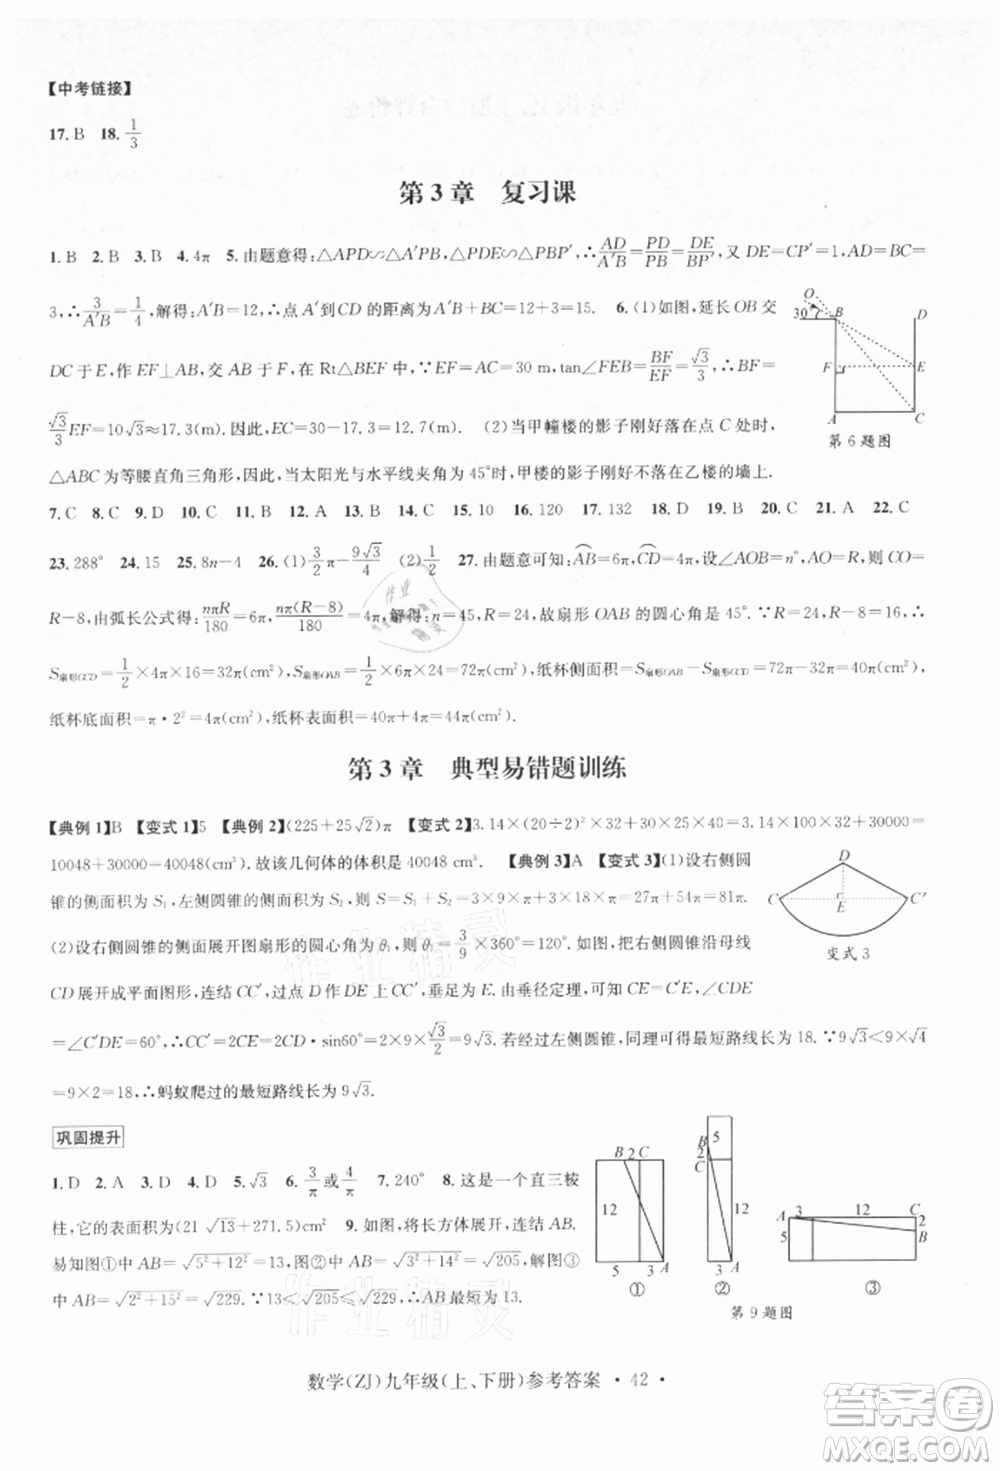 【中考链接】
17. B 18. 1/3
第 3 章 复习课
1. B 2. B 3. B 4. 4π 5. 由题意得:△APD∽△A′PB,△PDE∽△PBP′,∴AD/A′B=PD/PB=DE/BP′,又 DE=CP′=1,AD=BC=
3,∴3/A′B=1/4,解得:A′B=12,∴点 A′到 CD 的距离为 A′B+BC=12+3=15. 6. (1)如图,延长 OB 交
DC 于 E,作 EF⊥AB,交 AB 于 F,在 Rt△BEF 中,∵EF=AC=30 m,tan∠FEB=BF/EF=√3/3,∴BF=
√3/3 EF=10√3≈17.3(m). 因此,EC=30-17.3=12.7(m). (2)当甲幢楼的影子刚好落在点 C 处时,
△ABC 为等腰直角三角形,因此,当太阳光与水平线夹角为 45°时,甲楼的影子刚好不落在乙楼的墙上.
O
30°
B
D
F
E
A
C
第 6 题图
7. C 8. C 9. D 10. C 11. B 12. A 13. A 14. C 15. 2 16. 120 17. 132 18. B 19. B 20. D 21. A 22. C
23. 288° 24. 15 25. 8n-4 26. (1)3/2π-9√3/4 (2)1/2 27. 由题意可知:AB=6π,CD=4π,设∠AOB=n°,AO=R,则 CO=
R-8,由弧长公式得:nπR/180=6π,nπ(R-8)/180=4π,解得:n=45,R=24,故扇形 OAB 的圆心角为 45°. ∵R=24,R-8=16,∴
S扇形OCD=1/2×4π×16=32π(cm²),S扇形OAB=1/2×6π×24=72π(cm²),纸杯侧面积=S扇形OAB-S扇形OCD=72π-32π=40π(cm²),
纸杯底面积=π·2²=4π(cm²),纸杯表面积=40π+4π=44π(cm²).
第 3 章 典型易错题训练
【典例 1】B 【变式 1】5 【典例 2】(225+25√2)π 【变式 2】3.14×(20÷2)²×32+30×25×40=3.14×100×32+30000=
10048+30000=40048(cm³). 故该几何体的体积是 40048 cm³. 【典例 3】A 【变式 3】(1)设右侧圆
锥的侧面积为 S₁,左侧圆锥的侧面积为 S₂,则 S=S₁+S₂=3×9×π+3×6×π=27π+18π... 
(2)设右侧圆锥的侧面展开图扇形的圆心角为 θ₁,则 θ₁=3/9×360°=120°. 如图,把右侧圆锥沿母线
CD 展开成平面图形,连结 CC′,过点 D 作 DE⊥CC′,垂足为 E. 由垂径定理,可知 CE=C′E,∠CDE
=∠C′DE=60°,∴CC′=2CD·sin60°=2×9×√3/2=9√3. 若经过左侧圆锥,同理可求得最短路线长为 18. ∵9√3<9×√4
=9×2=18,∴蚂蚁爬过的最短路线长为 9√3.
D
C
E
C′
变式 3
巩固提升
1. D 2. A 3. D 4. C 5. √3 6. 3/π或4/π 7. 240° 8. 这是一个直三棱
柱,它的表面积为(21√13+271.5)cm² 9. 如图,将长方体展开,
易知图①中 AB=√(5²+12²)=13,图②中 AB=√(3²+14²)=√205,图③
中 AB=√(2²+15²)=√229. ∵13<√205<√229,∴AB 最短为 13.
B 2 C
12
5 3 A
①
B
5
2
C
12
3 A
②
A 3 12 C
2
5
B
③
第 9 题图
数学(ZJ)九年级(上、下册)参考答案 · 42 ·
作业精灵
作业精灵
答案圈
MXQE.COM